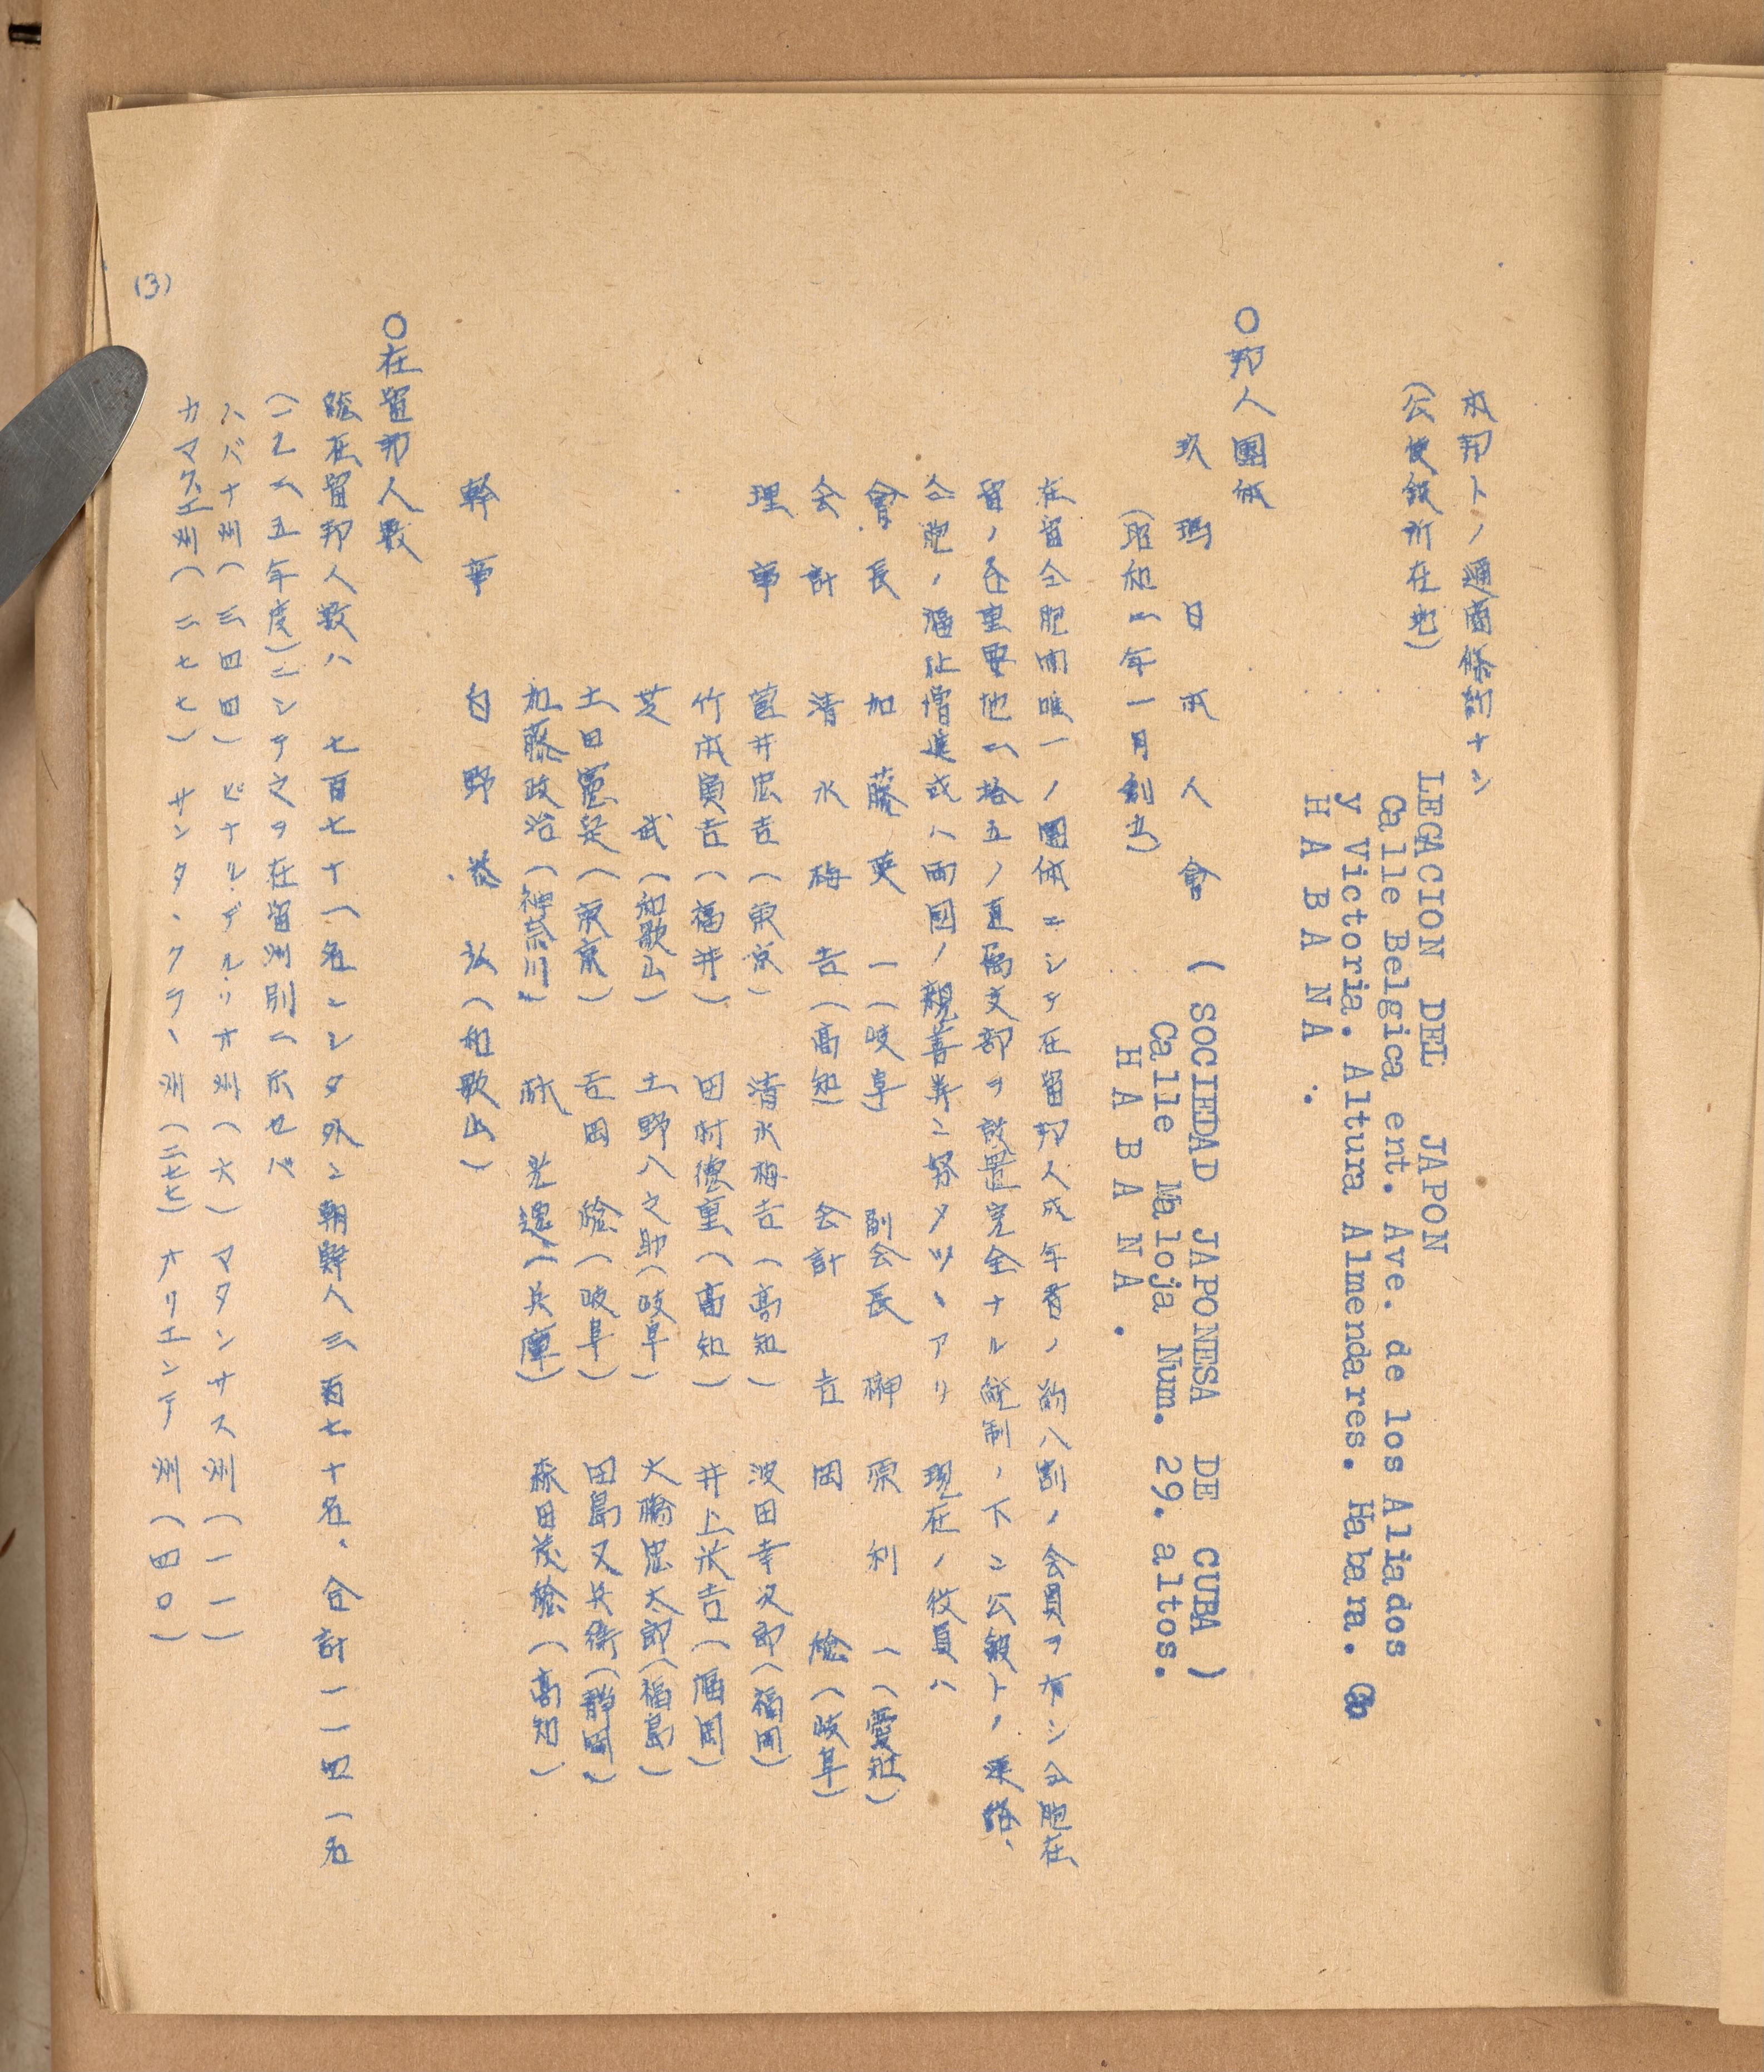 本邦トノ通商條約ナシ
(公使舘所在地)
LEGACION DEL JAPON
Calle Belgica ent. Ave. de los Aliados
y Victoria. Altura Almendares. Habana.
HABANA.
〇邦人團体
玖瑪日本人會 ( SOCIEDAD JAPONESA DE CUBA )
Calle Maloja Num. 29. altos.
(昭和二年一月創立)
HABANA.
在留仝胞間唯一ノ團体ニシテ在留邦人成年者ノ約八割ノ会員ヲ有シ仝胞在
留ノ各重要地ニ拾五ノ直属支部ヲ設置完全ナル統制ノ下ニ公舘トノ連絡、
仝胞ノ福祉増進或ハ両国ノ親善等ニ努メツヽアリ 現在ノ役員ハ
會長 加藤英一(岐阜) 副会長 榊原利一(愛知)
会計 清水梅吉(高知) 会計 吉岡 (岐阜)
理事 菅井忠吉(東京) 清水梅吉(高知) 波田幸次郎(福岡)
竹本寅吉(福井) 田村德重(高知) 井上 吉(福岡)
芝 武(和歌山) 土野八之助(岐阜) 大橋忠太郎(福島)
土田憲 (東京) 吉岡 (岐阜) 田島又兵衛(静岡)
加藤政治(神奈川) 光 (兵庫) 森田茂 (高知)
幹事 白野 弘(和歌山)
〇在留邦人数
総在留邦人数ハ 七百七十一名ニシタ外ニ朝鮮人三百七十名、合計一一四一名
(一九三五年度)ニシテ之ヲ在留州別ニ示セバ
ハバナ州(三四四) ピナル・デル・リオ州(六) マタンサス州(一一一)
カマグエ州(二七七) サンタ・クララ州(二七七) オリエンテ州(四〇)
(3)